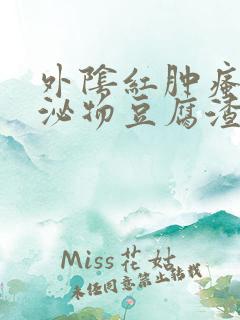 外陰紅肿瘙
泌物豆腐渣
Miss花姑
未经同意禁止转载